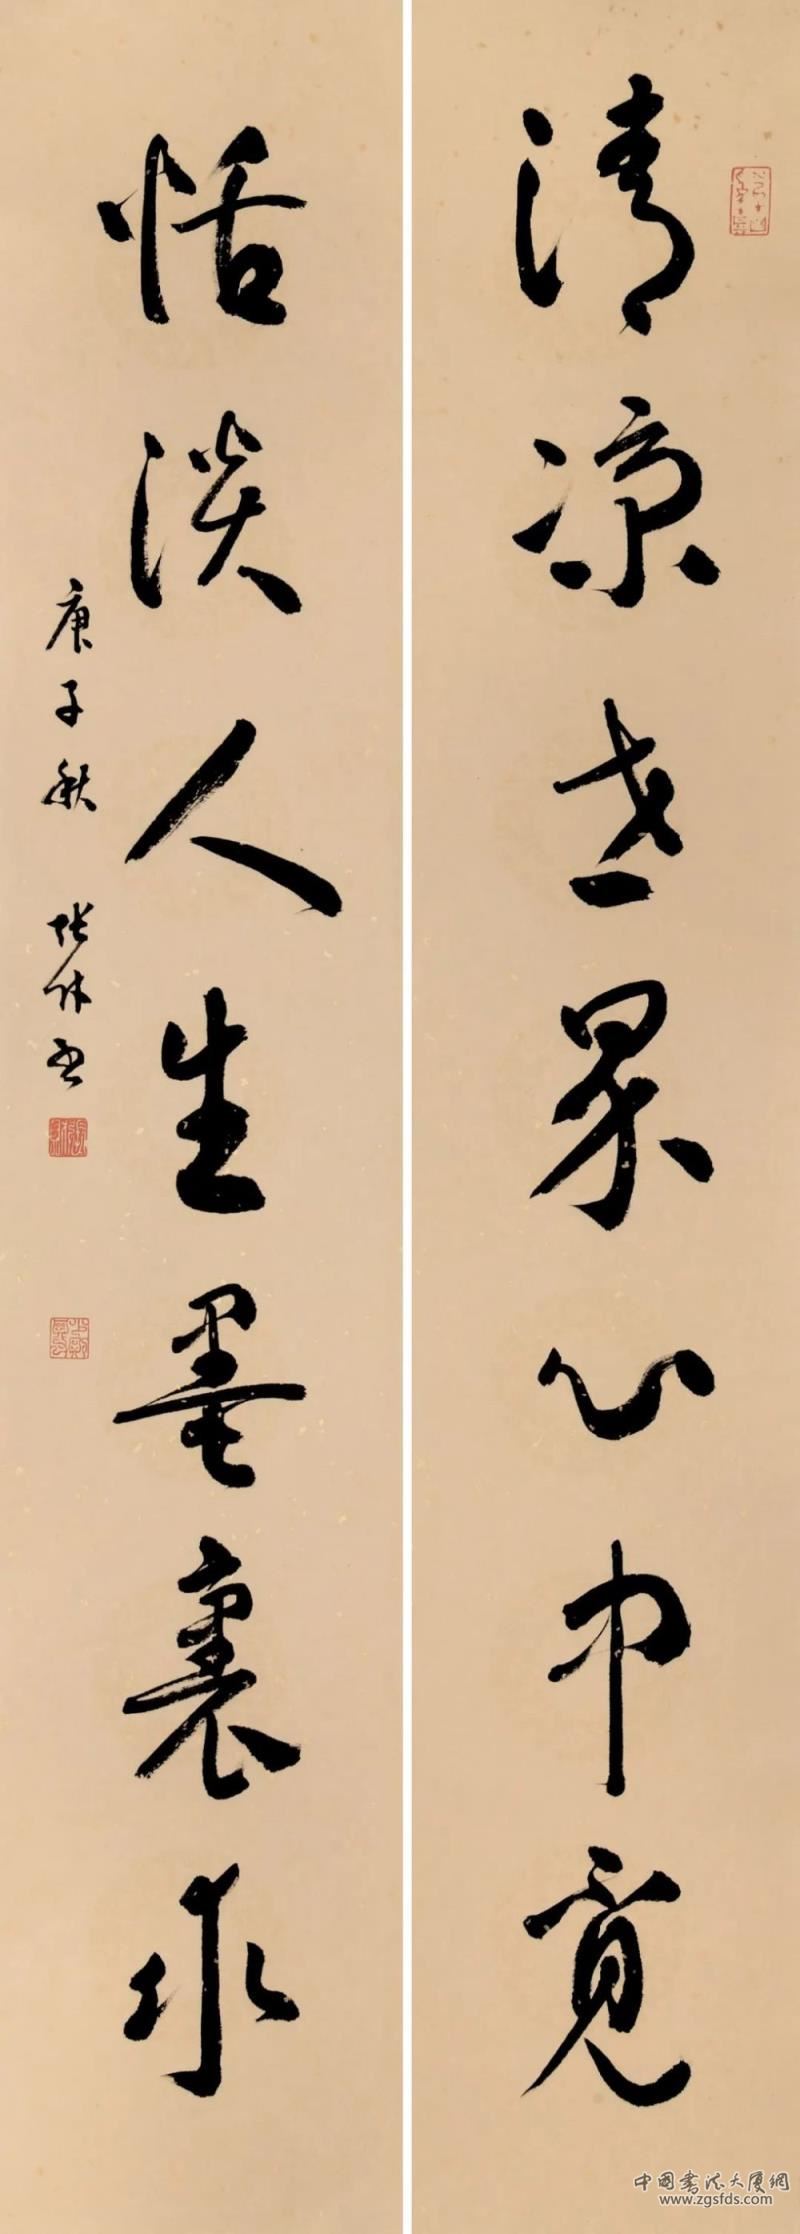 清凉世界心中觅
恬淡人生墨里求
庚子秋 张休书
中国书法大厦网
www.zgsfds.com